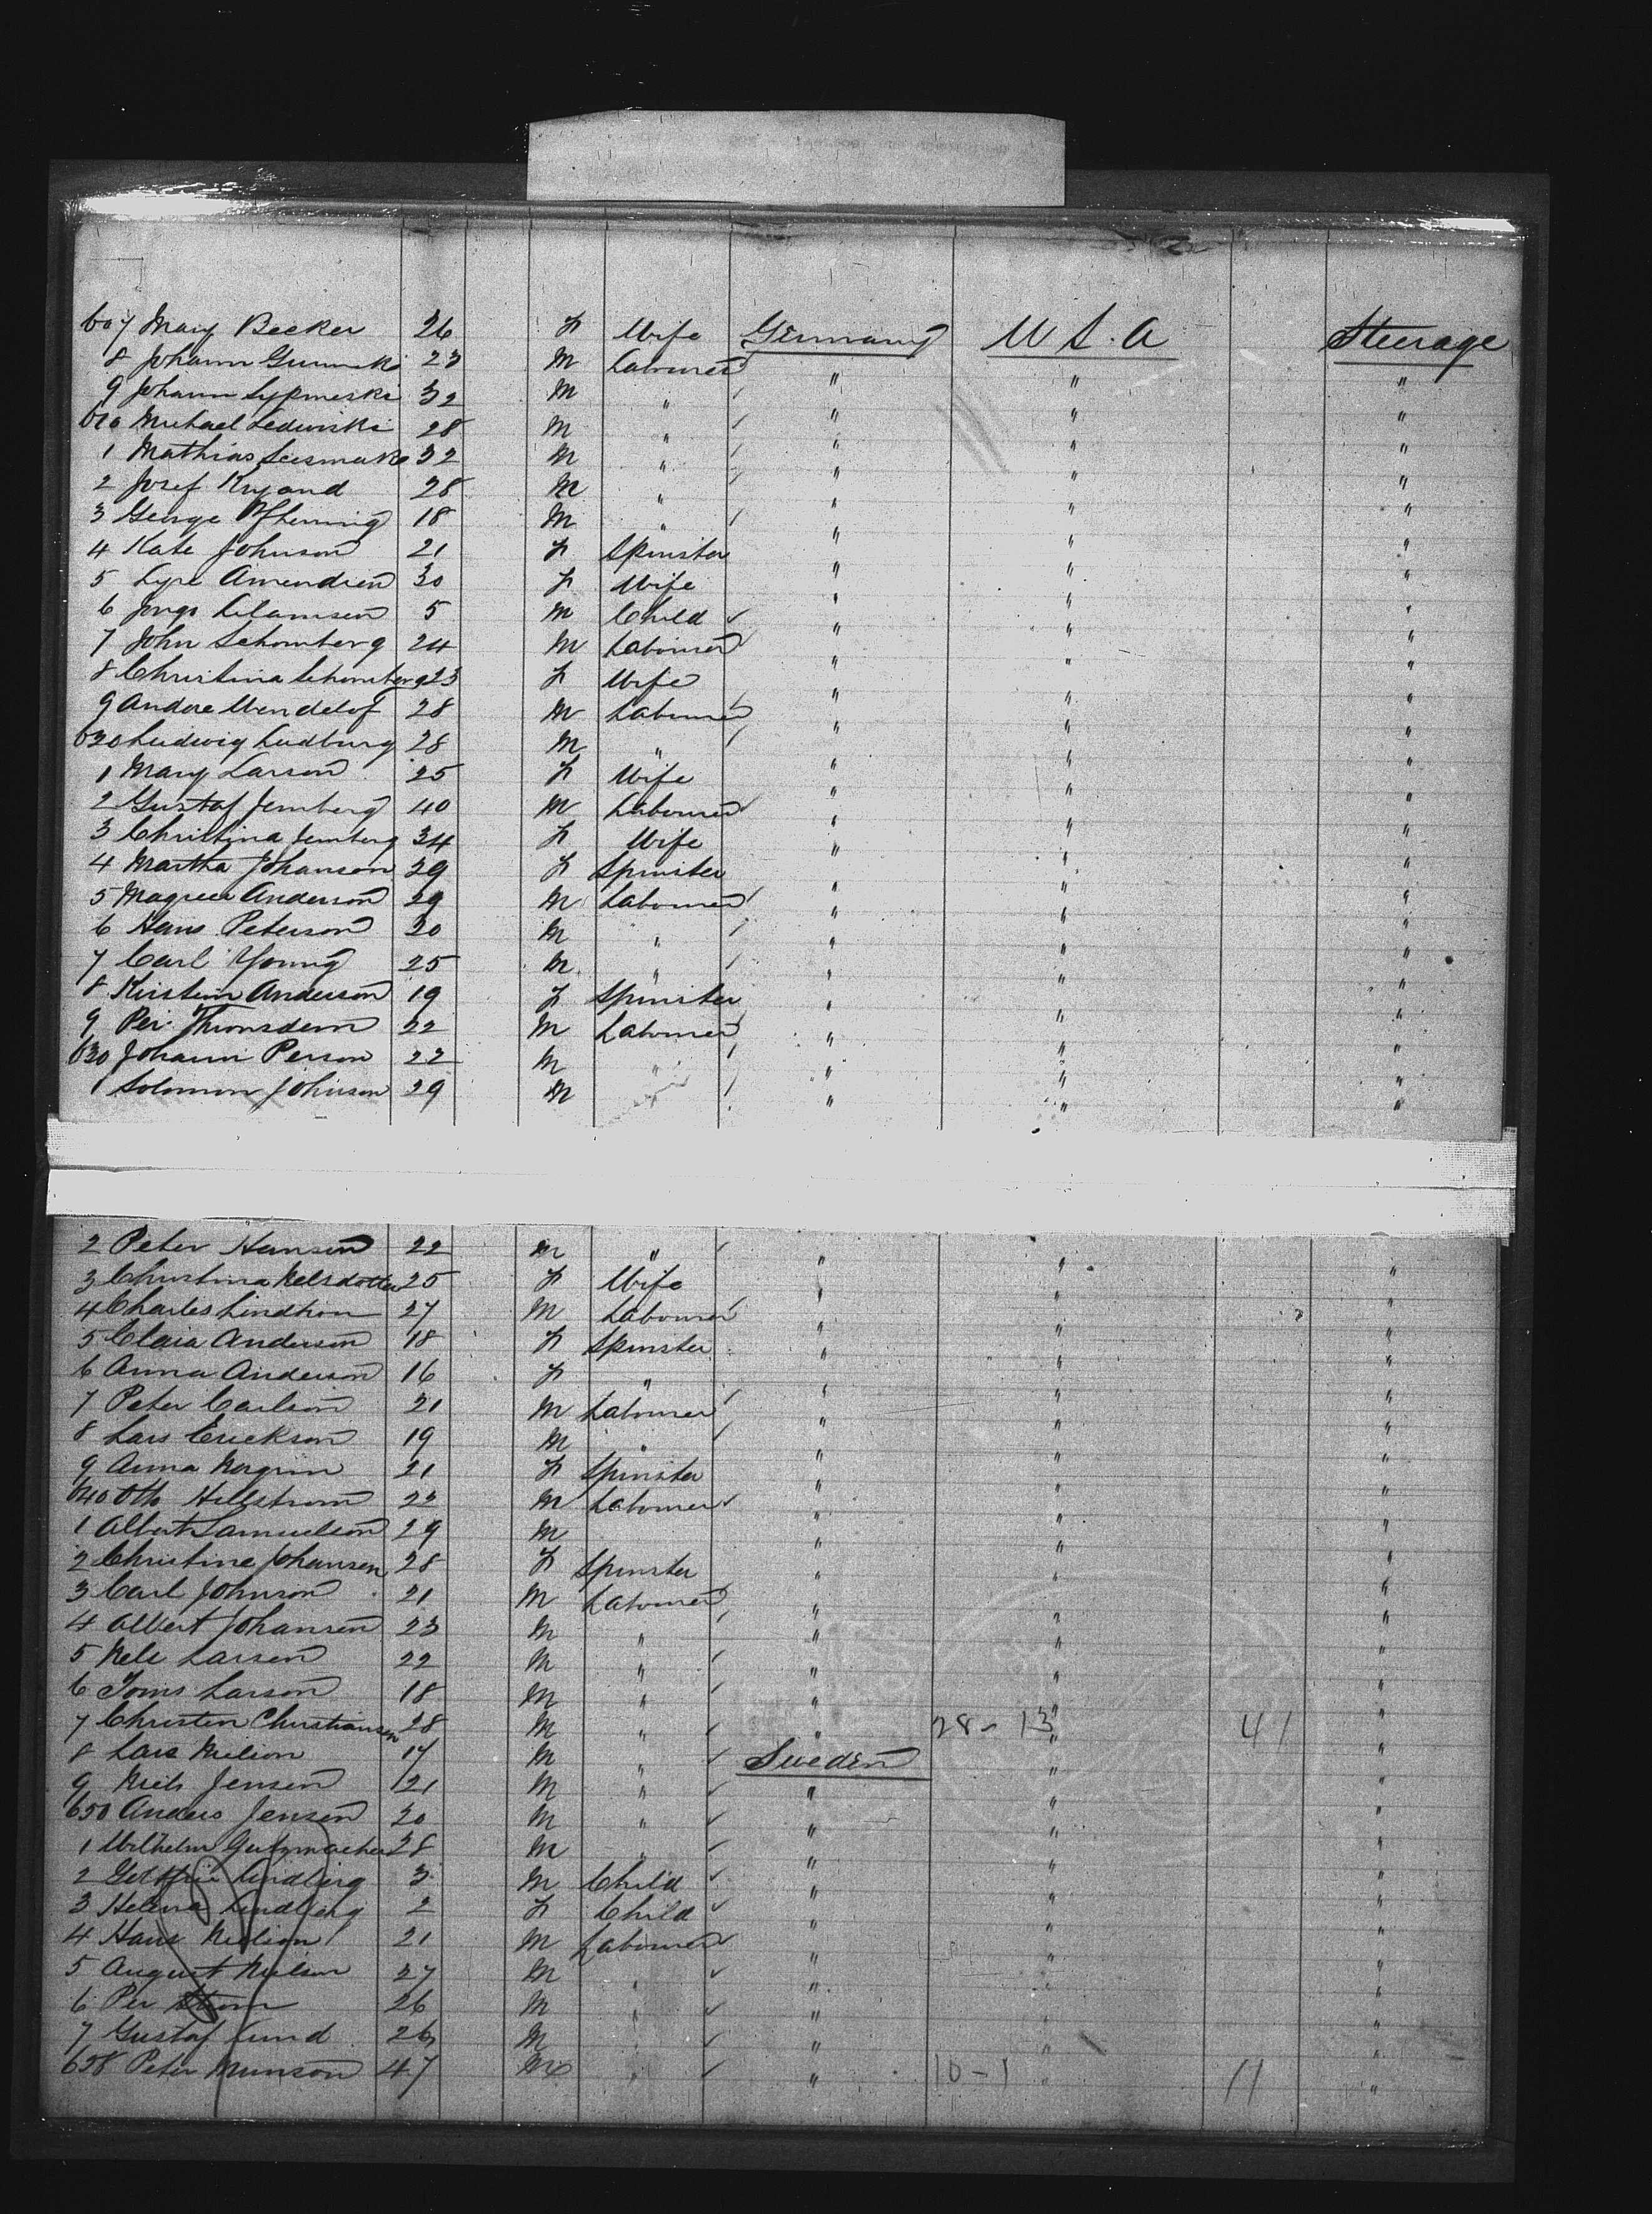 607 Mary Becker 26 F Wife Germany U S. A Steerage
8 Johann 23 M Labourer " " "
9 Johann 32 M " " " "
610 Michael Ledwiski 28 M " " " "
1 Mathias 32 M " " " "
2 Josef 28 M " " " "
3 George 18 M " " " "
4 Kate Johnson 21 F Spinster " " "
5 30 F Wife " " "
6 5 M Child " " "
7 John Schomberg 24 M Labourer " " "
8 Christina Schomberg 23 F Wife " " "
9 Andre Wendelof 28 M Labourer " " "
620 Ludwig Ludburg 28 M " " " "
1 Mary Larson 25 F Wife " " "
2 Gustaf Jernberg 40 M Labourer " " "
3 Christina Jernberg 34 F Wife " " "
4 Martha Johanson 29 F Spinster " " "
5 Anderson 29 M Labourer " " "
6 Hans Peterson 20 M " " " "
7 Carl Young 25 M " " " "
8 Kirstein Anderson 19 F Spinster " " "
9 Per 22 M Labourer " " "
630 Johann Person 22 M " " " "
1 Solomon Johnson 29 M " " " "
2 Peter Hansen 22 M " " " "
3 Christina Nelsdotter 25 F Wife " " "
4 Charles 27 M Labourer " " "
5 Clara Anderson 18 F Spinster " " "
6 Anna Anderson 16 F " " " "
7 Peter Carlson 21 M Labourer " " "
8 Lars Erickson 19 M " " " "
9 Anna Norgrin 21 F Spinster " " "
640 Otto Hellstrom 22 M Labourer " " "
1 Albert Samuelson 29 M " " "
2 Christine Johansen 28 F Spinster " " "
3 Carl Johnson 21 M Labourer " " "
4 Albert Johansen 23 M " " " "
5 Nels Larsen 22 M " " " "
6 Larson 18 M " " " "
7 Christen Christiansen 28 M " " 28-13 " 41 "
8 Lars Nielson 17 M " Sweden " "
9 Niels Jensen 21 M " " " "
650 Anders Jensen 20 M " " " "
1 Wilhelm Gutzmacher 28 M " " " "
2 Lindberg 3 M Child " " "
3 Helena Lindberg 2 F Child " " "
4 Hans Nielson 21 M Labourer " " "
5 August Nielson 27 M " " " "
6 Per Strom 26 M " " " "
7 Gustaf Lund 26 M " " " "
658 Peter Munson 47 M " " 10-1 " 11 "